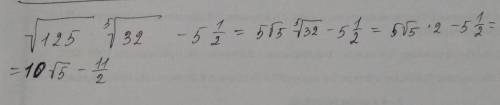 √125 ⁵√32 - 5 1/2 = 5√5 ⁵√32 - 5 1/2 = 5√5 · 2 - 5 1/2 =
= 10√5 - 11/2